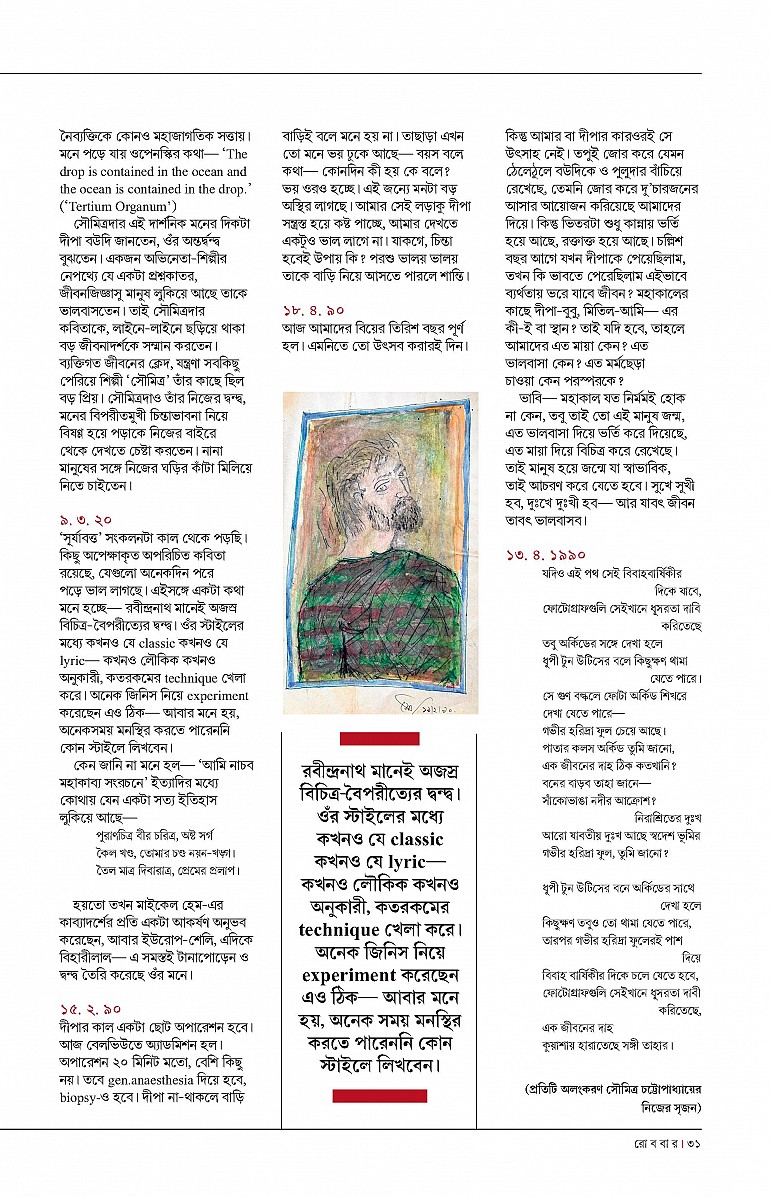 নৈব্যক্তিকে কোনও মহাজাগতিক সত্তায়।
মনে পড়ে যায় ওপেনস্কির কথা— ‘The
drop is contained in the ocean and
the ocean is contained in the drop.’
(‘Tertium Organum’)
সৌমিত্রদার এই দার্শনিক মনের দিকটা
দীপা বউদি জানতেন, ওঁর অন্তর্দ্বন্দ্ব
বুঝতেন। একজন অভিনেতা-শিল্পীর
নেপথ্যে যে একটা প্রশ্নকাতর,
জীবনজিজ্ঞাসু মানুষ লুকিয়ে আছে তাকে
ভালবাসতেন। তাই সৌমিত্রদার
কবিতাকে, লাইনে-লাইনে ছড়িয়ে থাকা
বড় জীবনাদর্শকে সম্মান করতেন।
ব্যক্তিগত জীবনের ক্লেদ, যন্ত্রণা সবকিছু
পেরিয়ে শিল্পী ‘সৌমিত্র’ তাঁর কাছে ছিল
বড় প্রিয়। সৌমিত্রদাও তাঁর নিজের দ্বন্দ্ব,
মনের বিপরীতমুখী চিন্তাভাবনা নিয়ে
বিষণ্ণ হয়ে পড়াকে নিজের বাইরে
থেকে দেখতে চেষ্টা করতেন। নানা
মানুষের সঙ্গে নিজের ঘড়ির কাঁটা মিলিয়ে
নিতে চাইতেন।
৯. ৩. ২০
‘সূর্যাবর্ত্ত’ সংকলনটা কাল থেকে পড়ছি।
কিছু অপেক্ষাকৃত অপরিচিত কবিতা
রয়েছে, যেগুলো অনেকদিন পরে
পড়ে ভাল লাগছে। এইসঙ্গে একটা কথা
মনে হচ্ছে— রবীন্দ্রনাথ মানেই অজস্র
বিচিত্র-বৈপরীত্যের দ্বন্দ্ব। ওঁর স্টাইলের
মধ্যে কখনও যে classic কখনও যে
lyric— কখনও লৌকিক কখনও
অনুকারী, কতরকমের technique খেলা
করে। অনেক জিনিস নিয়ে experiment
করেছেন এও ঠিক— আবার মনে হয়,
অনেকসময় মনস্থির করতে পারেননি
কোন স্টাইলে লিখবেন।
কেন জানি না মনে হল— ‘আমি নাচব
মহাকাব্য সংরচনে’ ইত্যাদির মধ্যে
কোথায় যেন একটা সত্য ইতিহাস
লুকিয়ে আছে—
পুরাণচিত্র বীর চরিত্র, অষ্ট সর্গ
কৈল খণ্ড, তোমার চণ্ড নয়ন-খড়্গ।
তৈল মাত্র দিবারাত্র, প্রেমের প্রলাপ।
হয়তো তখন মাইকেল হেম-এর
কাব্যাদর্শের প্রতি একটা আকর্ষণ অনুভব
করেছেন, আবার ইউরোপ-শেলি, এদিকে
বিহারীলাল— এ সমস্তই টানাপোড়েন ও
দ্বন্দ্ব তৈরি করেছে ওঁর মনে।
১৫. ২. ৯০
দীপার কাল একটা ছোট অপারেশন হবে।
আজ বেলভিউতে অ্যাডমিশন হল।
অপারেশন ২০ মিনিট মতো, বেশি কিছু
নয়। তবে gen.anaesthesia দিয়ে হবে,
biopsy-ও হবে। দীপা না-থাকলে বাড়ি
বাড়িই বলে মনে হয় না। তাছাড়া এখন
তো মনে ভয় ঢুকে আছে— বয়স বলে
কথা— কোনদিন কী হয় কে বলে?
ভয় ওরও হচ্ছে। এই জন্যে মনটা বড়
অস্থির লাগছে। আমার সেই লড়াকু দীপা
সন্ত্রস্ত হয়ে কষ্ট পাচ্ছে, আমার দেখতে
একটুও ভাল লাগে না। যাকগে, চিন্তা
হবেই উপায় কি? পরশু ভালয় ভালয়
তাকে বাড়ি নিয়ে আসতে পারলে শান্তি।
১৮. ৪. ৯০
আজ আমাদের বিয়ের তিরিশ বছর পূর্ণ
হল। এমনিতে তো উৎসব করারই দিন।
রবীন্দ্রনাথ মানেই অজস্র
বিচিত্র-বৈপরীত্যের দ্বন্দ্ব।
ওঁর স্টাইলের মধ্যে
কখনও যে classic
কখনও যে lyric—
কখনও লৌকিক কখনও
অনুকারী, কতরকমের
technique খেলা করে।
অনেক জিনিস নিয়ে
experiment করেছেন
এও ঠিক— আবার মনে
হয়, অনেক সময় মনস্থির
করতে পারেননি কোন
স্টাইলে লিখবেন।
কিন্তু আমার বা দীপার কারওরই সে
উৎসাহ নেই। তপুই জোর করে যেমন
ঠেলেঠুলে বউদিকে ও পুলুদার বাঁচিয়ে
রেখেছে, তেমনি জোর করে দু’চারজনের
আসার আয়োজন করিয়েছে আমাদের
দিয়ে। কিন্তু ভিতরটা শুধু কান্নায় ভর্তি
হয়ে আছে, রক্তাক্ত হয়ে আছে। চল্লিশ
বছর আগে যখন দীপাকে পেয়েছিলাম,
তখন কি ভাবতে পেরেছিলাম এইভাবে
ব্যর্থতায় ভরে যাবে জীবন? মহাকালের
কাছে দীপা-বুবু, মিতিল-আমি— এর
কী-ই বা স্থান? তাই যদি হবে, তাহলে
আমাদের এত মায়া কেন? এত
ভালবাসা কেন? এত মর্মছেড়া
চাওয়া কেন পরস্পরকে?
ভাবি— মহাকাল যত নির্মমই হোক
না কেন, তবু তাই তো এই মানুষ জন্ম,
এত ভালবাসা দিয়ে ভর্তি করে দিয়েছে,
এত মায়া দিয়ে বিচিত্র করে রেখেছে।
তাই মানুষ হয়ে জন্মে যা স্বাভাবিক,
তাই আচরণ করে যেতে হবে। সুখে সুখী
হব, দুঃখে দুঃখী হব— আর যাবৎ জীবন
তাবৎ ভালবাসব।
১৩. ৪. ১৯৯০
যদিও এই পথ সেই বিবাহবার্ষিকীর
দিকে যাবে,
ফোটোগ্রাফগুলি সেইখানে ধূসরতা দাবি
করিতেছে
তবু অর্কিডের সঙ্গে দেখা হলে
ধূপী টুন উটিসের বলে কিছুক্ষণ থামা
যেতে পারে।
সে গুণ বল্কলে ফোটা অর্কিড শিখরে
দেখা যেতে পারে—
গভীর হরিদ্রা ফুল চেয়ে আছে।
পাতার কলস অর্কিড তুমি জানো,
এক জীবনের দাহ ঠিক কতখানি?
বনের বাড়ব তাহা জানে—
সাঁকোভাঙা নদীর আক্রোশ?
নিরাশ্রিতের দুঃখ
আরো যাবতীয় দুঃখ আছে স্বদেশ ভূমির
গভীর হরিদ্রা ফুল, তুমি জানো?
ধূপী টুন উটিসের বনে অর্কিডের সাথে
দেখা হলে
কিছুক্ষণ তবুও তো থামা যেতে পারে,
তারপর গভীর হরিদ্রা ফুলেরই পাশ
দিয়ে
বিবাহ বার্ষিকীর দিকে চলে যেতে হবে,
ফোটোগ্রাফগুলি সেইখানে ধূসরতা দাবী
করিতেছে,
এক জীবনের দাহ
কুয়াশায় হারাতেছে সঙ্গী তাহার।
(প্রতিটি অলংকরণ সৌমিত্র চট্টোপাধ্যায়ের
নিজের সৃজন)
রো ব বা র। ৩১